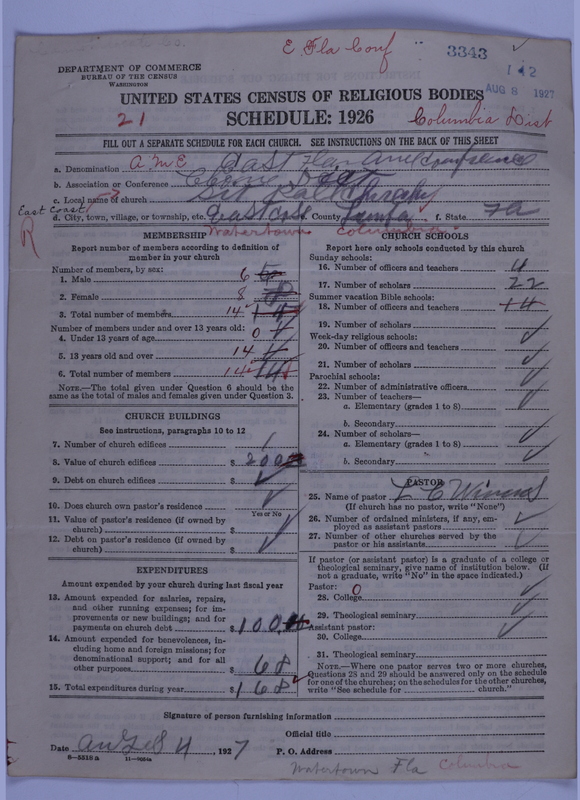 E. Fla Conf
3343
DEPARTMENT OF COMMERCE
BUREAU OF THE CENSUS
WASHINGTON
AUG 8 1927
UNITED STATES CENSUS OF RELIGIOUS BODIES
21
SCHEDULE: 1926
Columbia Dist
FILL OUT A SEPARATE SCHEDULE FOR EACH CHURCH. SEE INSTRUCTIONS ON THE BACK OF THIS SHEET
a. Denomination A.M.E East Fla AME Conference
b. Association or Conference
c. Local name of church
East Coast
d. City, town, village, or township, etc. County f. State Fla
R
Watertown Columbia
MEMBERSHIP
Report number of members according to definition of
member in your church
Number of members, by sex:
1. Male 6
2. Female 8
3. Total number of members 14
Number of members under and over 13 years old:
4. Under 13 years of age 0
5. 13 years old and over 14
6. Total number of members 14
NOTE.—The total given under Question 6 should be the
same as the total of males and females given under Question 3.
CHURCH BUILDINGS
See instructions, paragraphs 10 to 12
7. Number of church edifices 1
8. Value of church edifices $ 200
9. Debt on church edifices $
10. Does church own pastor's residence
Yes or No
11. Value of pastor's residence (if owned by
church) $
12. Debt on pastor's residence (if owned by
church) $
EXPENDITURES
Amount expended by your church during last fiscal year
13. Amount expended for salaries, repairs,
and other running expenses; for im-
provements or new buildings; and for
payments on church debt $ 100
14. Amount expended for benevolences, in-
cluding home and foreign missions; for
denominational support; and for all
other purposes $ 68
15. Total expenditures during year $ 168
CHURCH SCHOOLS
Report here only schools conducted by this church
Sunday schools:
16. Number of officers and teachers 4
17. Number of scholars 22
Summer vacation Bible schools:
18. Number of officers and teachers 14
19. Number of scholars
Week-day religious schools:
20. Number of officers and teachers
21. Number of scholars
Parochial schools:
22. Number of administrative officers
23. Number of teachers—
a. Elementary (grades 1 to 8)
b. Secondary
24. Number of scholars—
a. Elementary (grades 1 to 8)
b. Secondary
PASTOR
25. Name of pastor
(If church has no pastor, write "None")
26. Number of ordained ministers, if any, em-
ployed as assistant pastors
27. Number of other churches served by the
pastor or his assistants
If pastor (or assistant pastor) is a graduate of a college or
theological seminary, give name of institution below. (If
not a graduate, write "No" in the space indicated.)
Pastor: 0
28. College
29. Theological seminary
Assistant pastor:
30. College
31. Theological seminary
NOTE.—Where one pastor serves two or more churches,
Questions 28 and 29 should be answered only on the schedule
for one of the churches; on the schedules for the other churches,
write "See schedule for church."
Signature of person furnishing information
Official title
Date 4, 1927 P. O. Address
6—5519 a 11—9054a
Watertown Fla Columbia